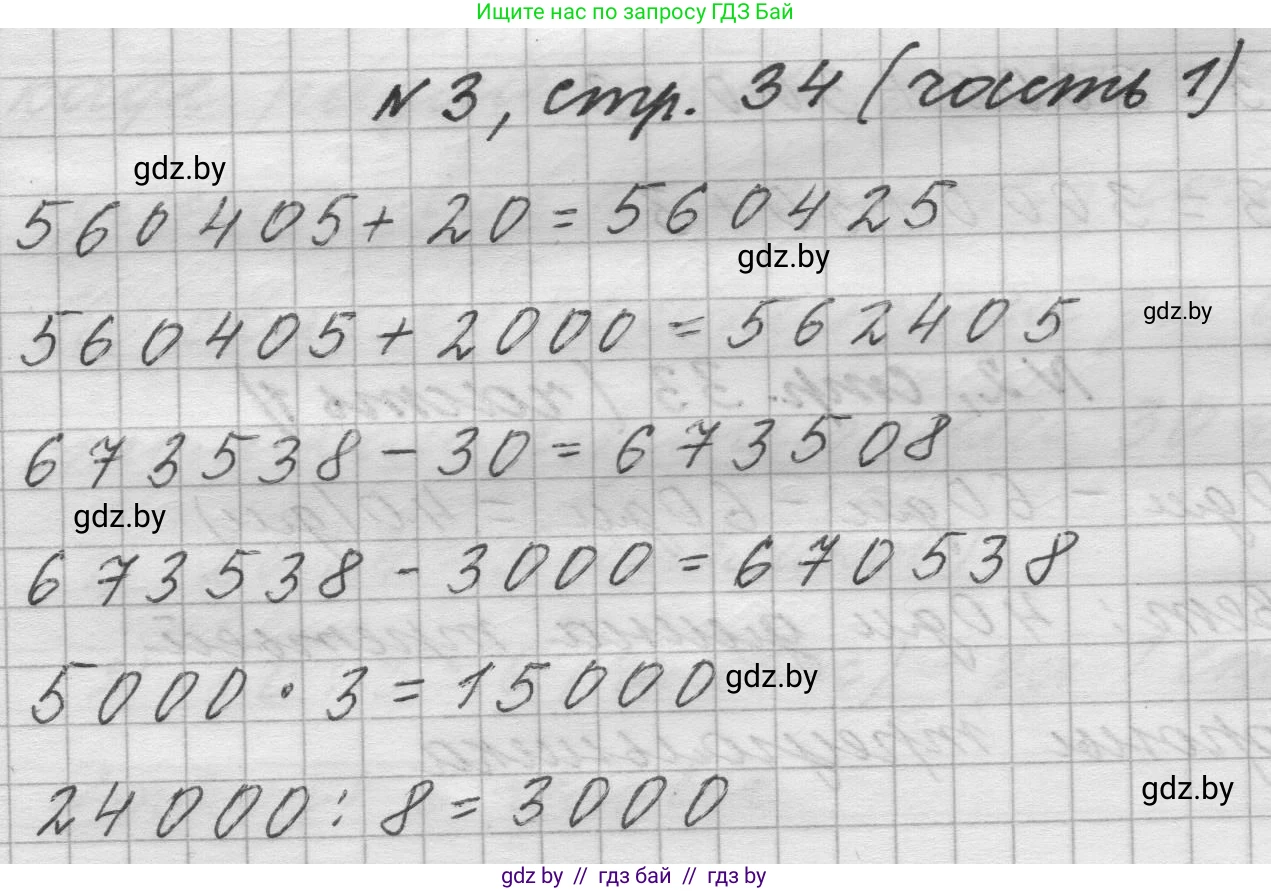 Ищите нас по запросу ГДЗ Бай
№ 3, стр. 34 (часть 1)
gdz.by
560405 + 20 = 560425
gdz.by
560405 + 2000 = 562405
gdz.by
673538 - 30 = 673508
gdz.by
673538 - 3000 = 670538
5000 · 3 = 15000
gdz.by
24000 : 8 = 3000
gdz.by
gdz by // гдз бай // гдз by